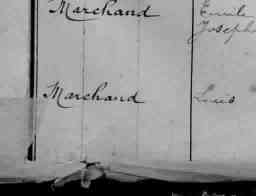 Marchand Emile
Joseph
Marchand Louis